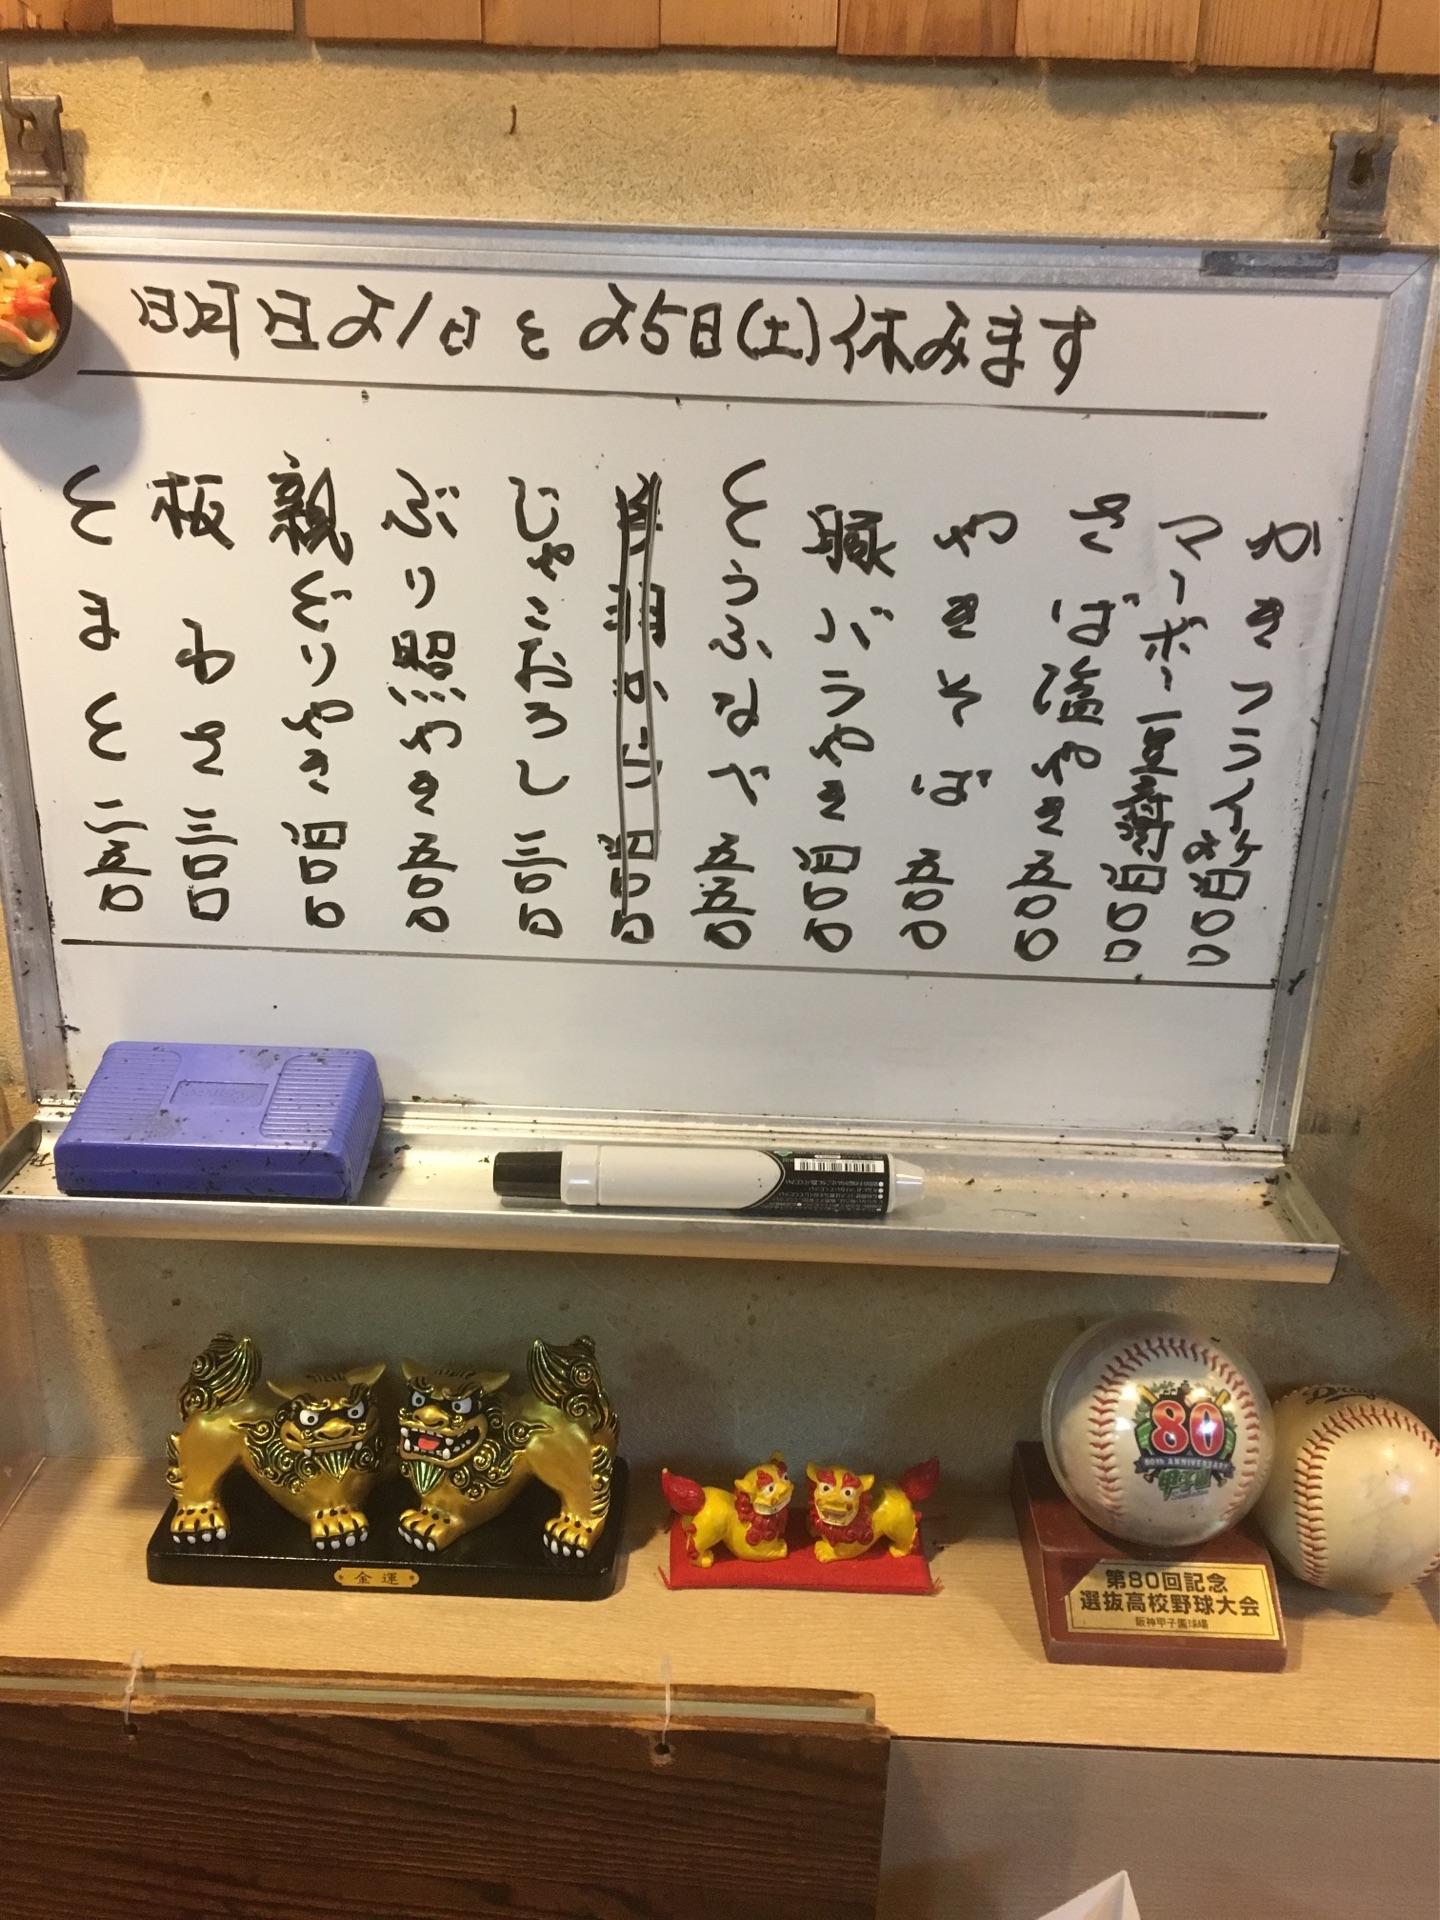 21日と25日(土)休みます
かきフライ 四〇〇
マーボー豆腐 四〇〇
さば塩やき 五〇〇
やきそば 五〇〇
豚バラやき 四〇〇
とうふなべ 五五〇
じゃこおろし 三〇〇
ぶり照やき 五〇〇
親どりやき 四〇〇
板わさ 三〇〇
とまと 二五〇
金運
80
80th ANNIVERSARY
甲子園
第80回記念
選抜高校野球大会
阪神甲子園球場